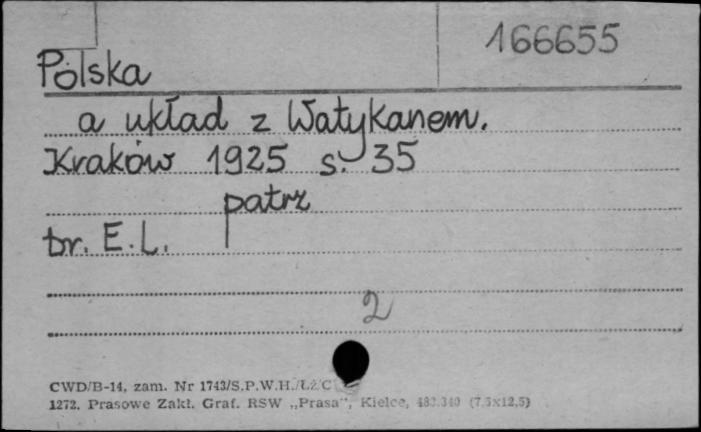 166655
Polska
a układ z Watykanem.
Kraków 1925 s. 35
patrz
br. E. L.
2
CWD/B-14, zam. Nr 1743/S.P.W.H./Ł2/C
1272. Prasowe Zakł. Graf. RSW „Prasa”, Kielce, 483.340 (7,5x12,5)